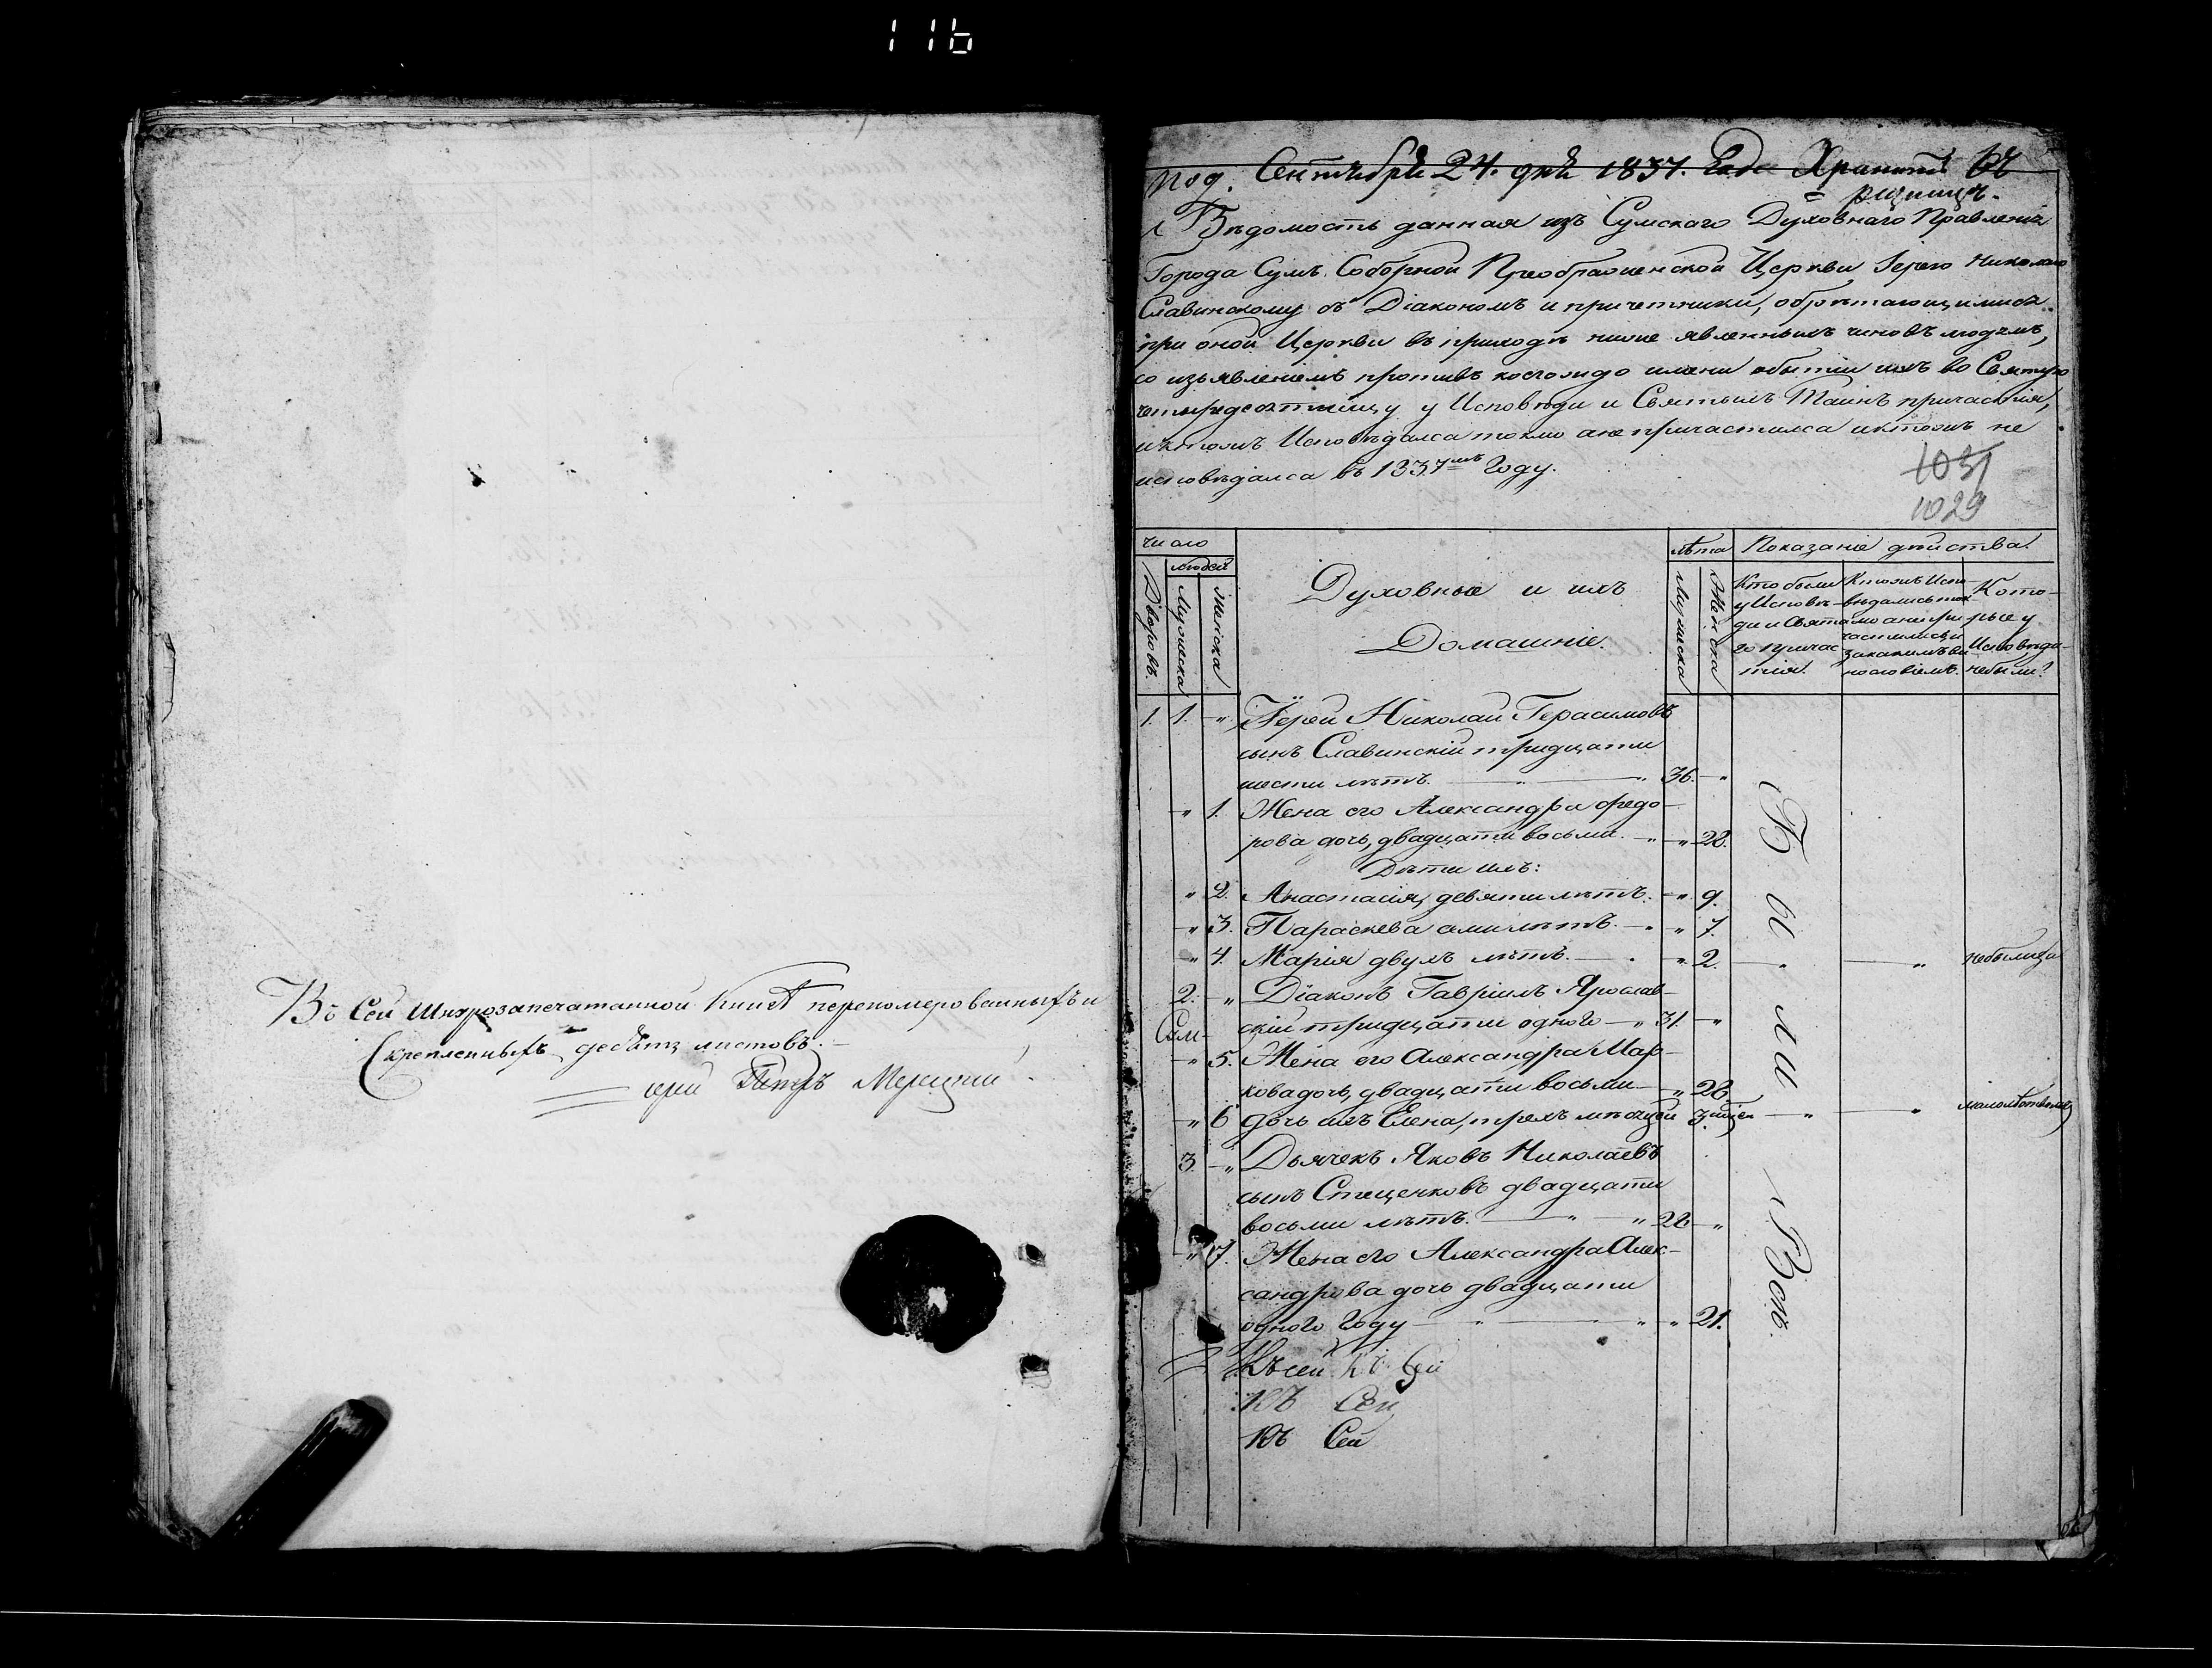 116
Въ Сей Шнурозапечатанной Книгѣ перепомерованныхъ и
Скрепленныхъ десять листовъ.
Іерей Петръ
Под. Сентября 24. дня 1837. Года Хранить въ
ризницѣ.
Вѣдомость данная изъ Сумскаго Духовнаго Правленія
Города Сумъ Соборной Преображенской Церкви Іерею Николаю
Славинскому съ Діакономъ и причетники, обрѣтающимися
при оной Церкви въ приходѣ ниже явленныхъ чиновъ людемъ,
со изъявленіемъ противъ коегождо имени обытіи ихъ во Святую
четыредесятницу у Исповѣди и Святыхъ Таинъ причастія,
и ктожъ Исповѣдался токмо а не причастился и ктожъ не
исповѣдался въ 1837мъ Году.
1031
1029
Число
людей
Дворовъ.
Мужеска
Женска
Духовные и ихъ
Домашніе.
лѣта
Мужеска
Женска
Показаніе дѣйства.
Кто были
у Исповѣ-
ди и Свята
го причас
тія.
Ктожъ Испо
вѣдались ток
мо а не при
частились и
за какимъ ви
нословіемъ.
Кото-
рые у
Исповѣди
небыли?
1. 1. - " Іерей Николай Герасимовъ
сынъ Славинскій тридцати
шести лѣтъ. 36. - "
" 1. Жена его Александра Федо-
рова дочь, двадцати восьми. " 28.
Дѣти ихъ:
" 2. Анастасія, девяти лѣтъ. " 9.
" 3. Параскева семи лѣтъ. " 7.
" 4. Марія двухъ лѣтъ. " 2. " " небылиза
2. - " Діаконъ Гавріилъ Ярослав-
скій тридцати одного " 31. - "
" 5. Жена его Александра Мар-
кова дочь, двадцати восьми " 28
" 6 дочь ихъ Елена, трехъ мѣсяцей 3. мцей " " малолѣтствомъ
3. - " Дьячекъ Яковъ Николаевъ
сынъ Стеценковъ двадцати
восьми лѣтъ. " " 28 - "
" 7. Жена его Александра Алек-
сандрова дочь двадцати
одного году " " " 21.
Были Всѣ.
Къ сей Къ Сей
Къ Сей
Къ Сей